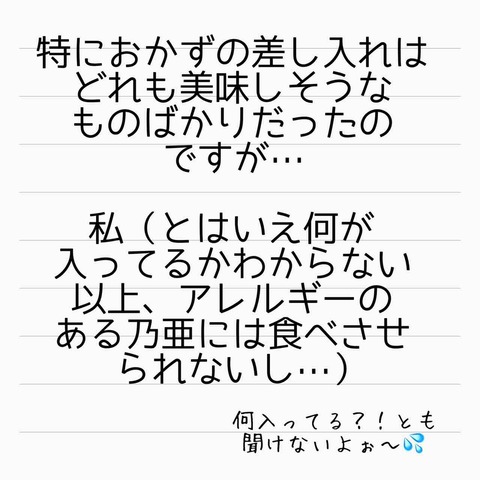 特におかずの差し入れは
どれも美味しそうな
ものばかりだったの
ですが…
私（とはいえ何が
入ってるかわからない
以上、アレルギーの
ある乃亜には食べさせ
られないし…）
何入ってる？！とも
聞けないよぉ〜💦